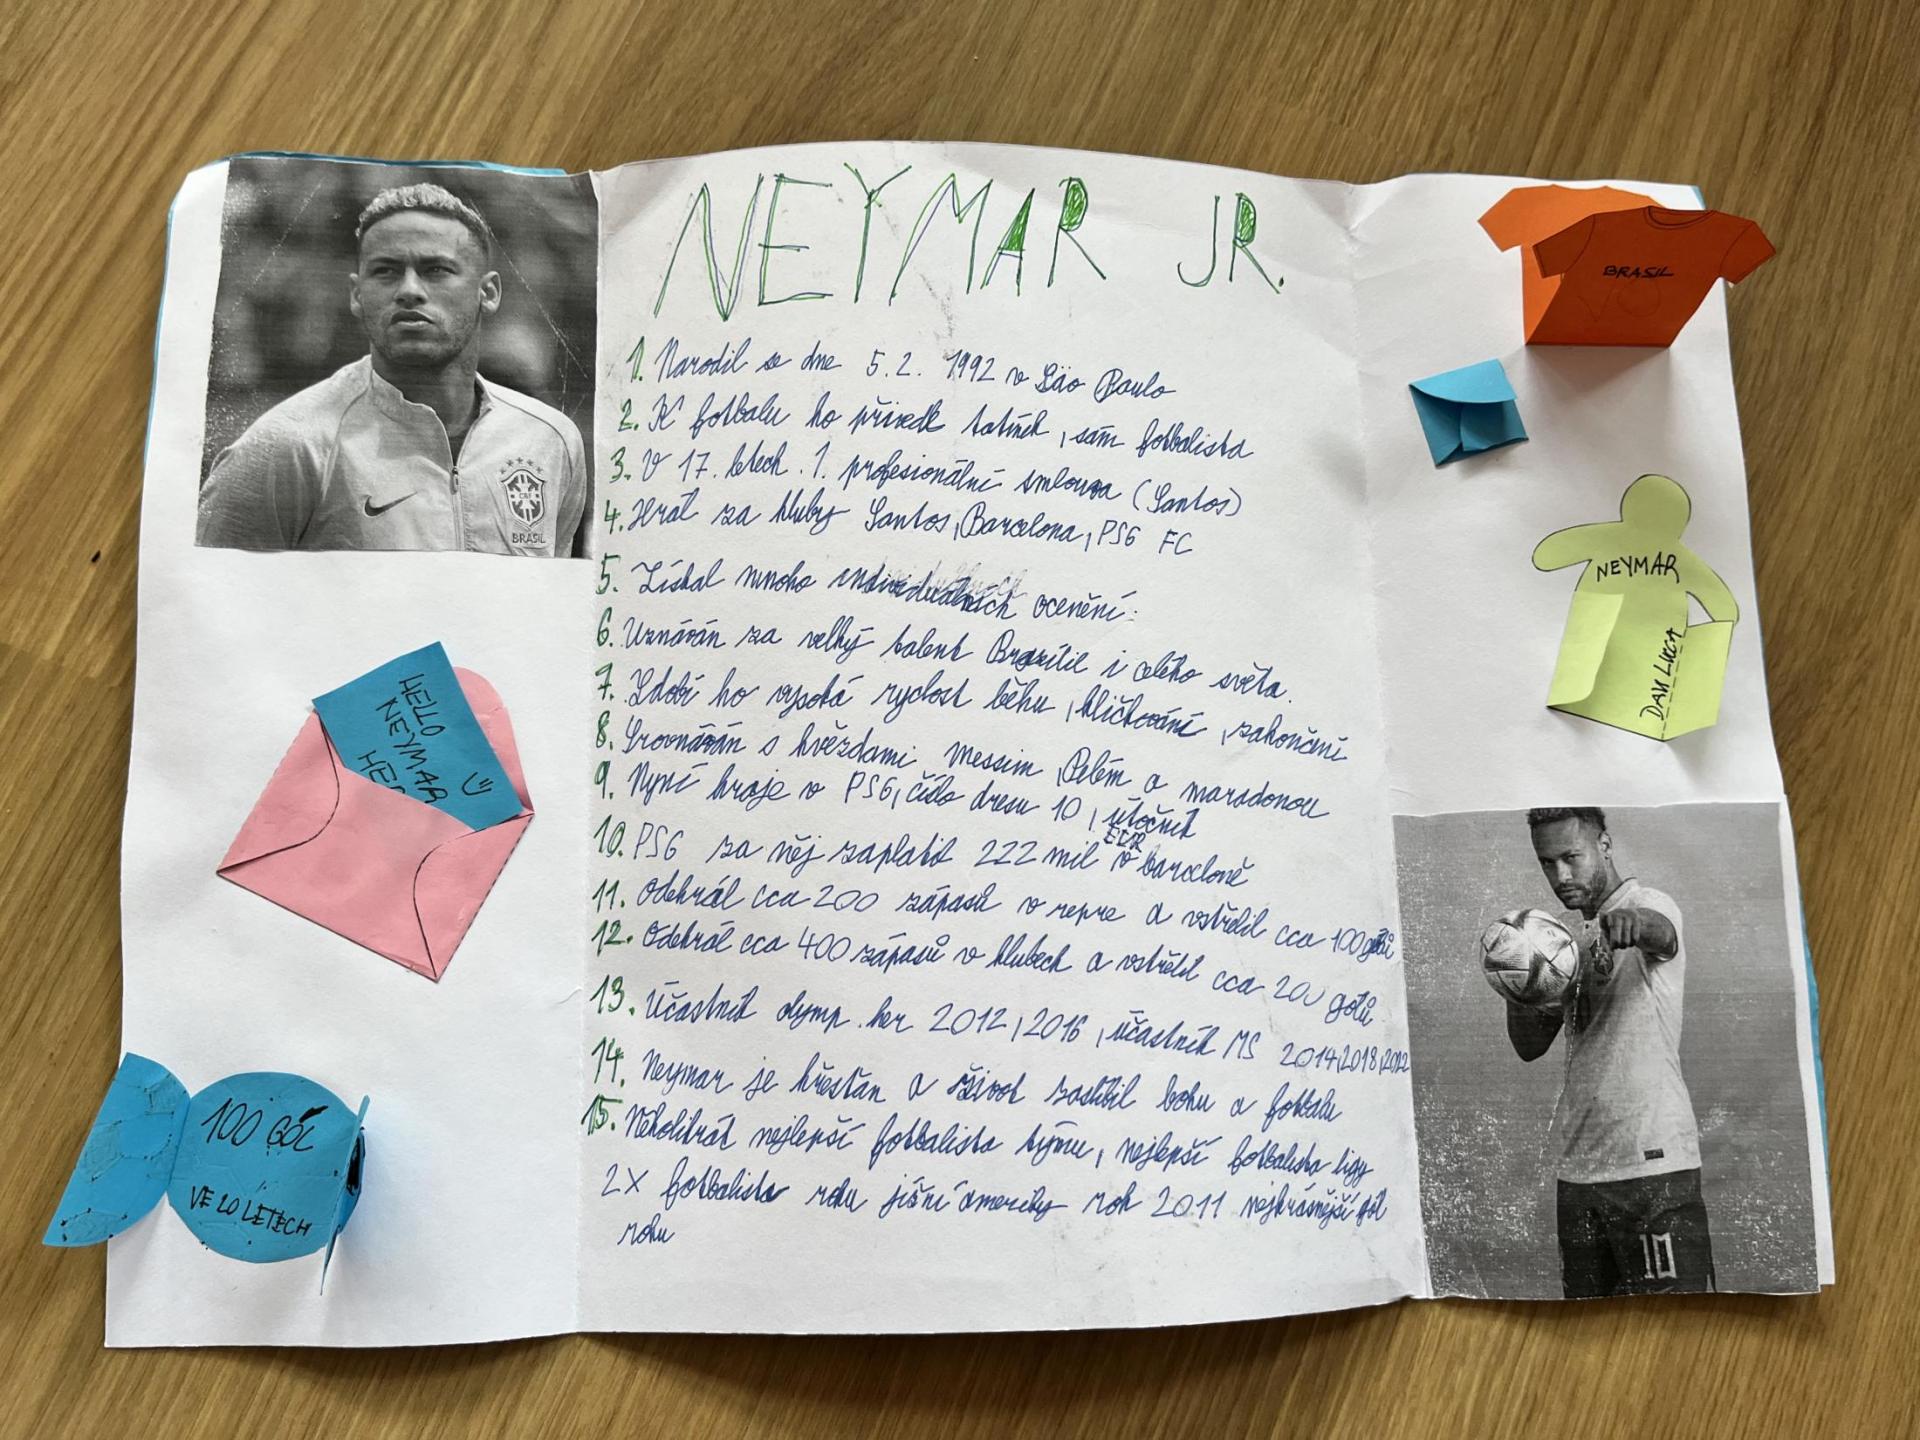 NEYMAR JR.
1. Narodil se dne 5. 2. 1992 v São Paulo
2. K fotbalu ho přivedl tatínek, sám fotbalista
3. V 17. letech 1. profesionální smlouva (Santos)
4. Hrál za kluby Santos, Barcelona, PSG FC
5. Získal mnoho individuálních ocenění:
6. Uznáván za velký talent Brazílie i celého světa.
7. Zdobí ho vysoká rychlost běhu, kličkování, zakončení
8. Srovnáván s hvězdami Messim, Pelém a maradonou
9. Nyní hraje v PSG, číslo dresu 10, útočník
10. PSG za něj zaplatil 222 mil EUR v Barceloně
11. Odehrál cca 200 zápasů v repre a vstřelil cca 100 gólů
12. Odehrál cca 400 zápasů v klubech a vstřelil cca 200 gólů
13. Účastník olymp. her 2012, 2016, účastník MS 2014, 2018, 2022
14. Neymar je křesťan a život zaslíbil bohu a fotbalu
15. Několikrát nejlepší fotbalista týmu, nejlepší fotbalista ligy
2X fotbalista roku jižní ameriky rok 2011 nejkrásnější gól
roku
BRASIL
HELLO
NEYMAR
100 GÓL
VE 20 LETECH
BRASIL
NEYMAR
DAVI LUCCA
10